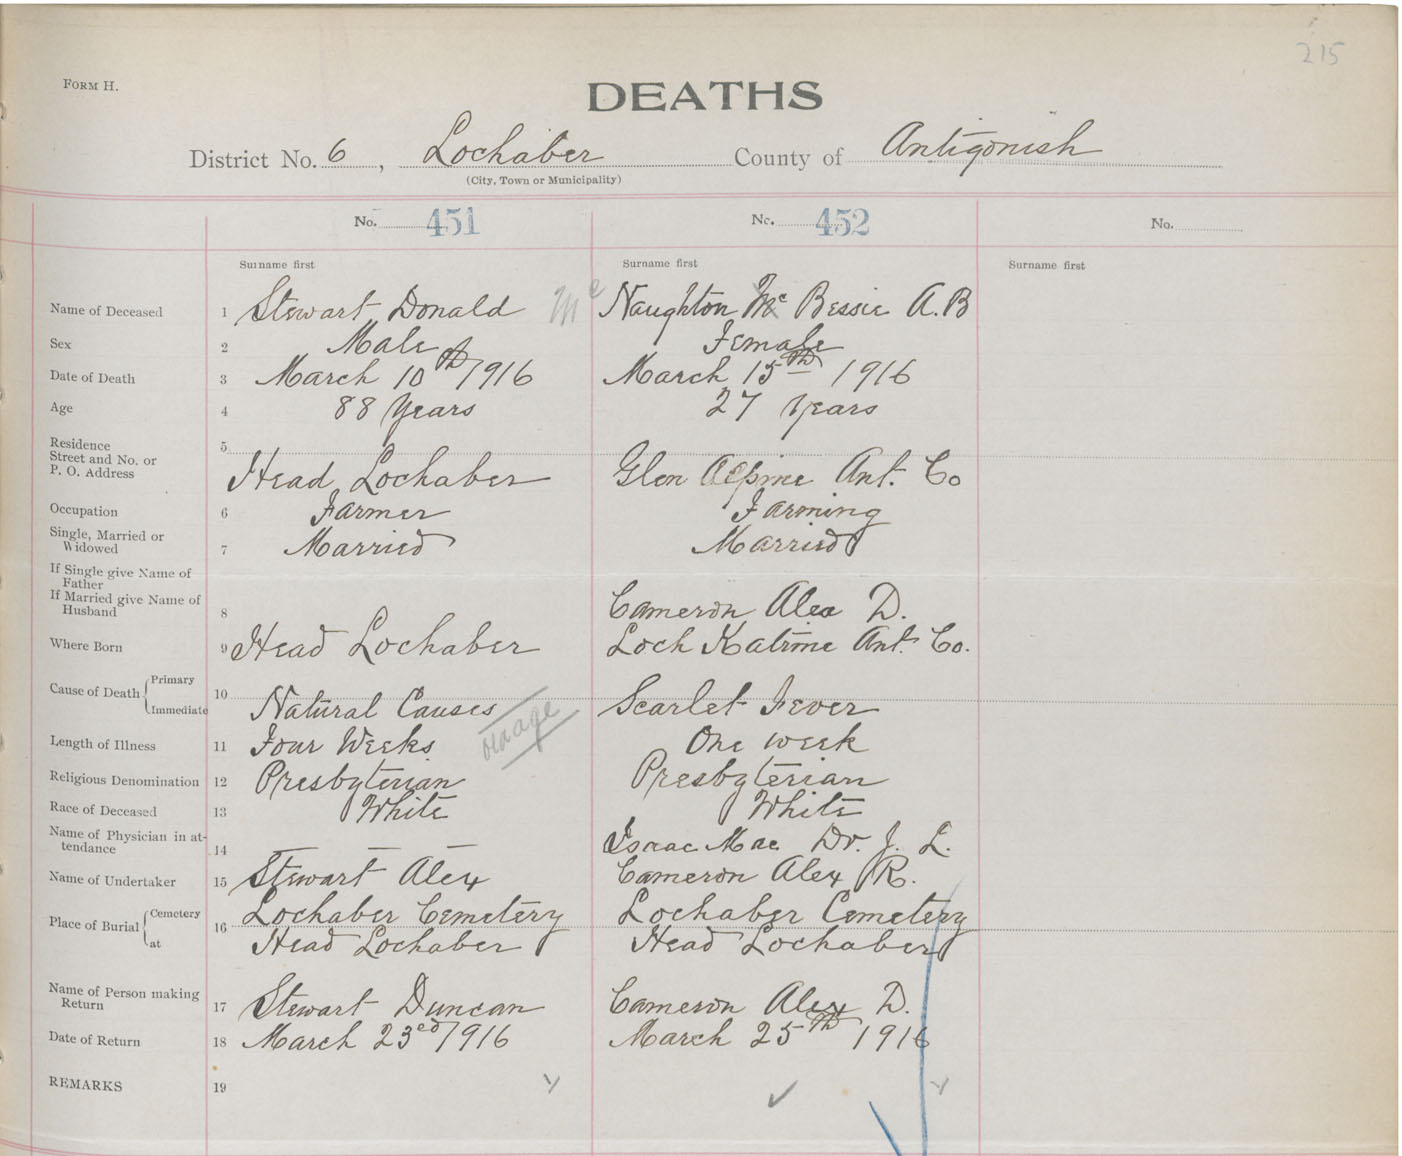 215
FORM H.
DEATHS
District No. 6, Lochaber County of Antigonish
(City, Town or Municipality)
No. 451 No. 452 No.
Surname first Surname first Surname first
Name of Deceased 1 Stewart Donald Mc Naughton Mc Bessie A.B
Sex 2 Male Female
Date of Death 3 March 10th 1916 March 15th 1916
Age 4 88 Years 27 Years
Residence 5
Street and No. or
P. O. Address Head Lochaber Glen Alpine Ant. Co
Occupation 6 Farmer Farming
Single, Married or
Widowed 7 Married Married
If Single give Name of
Father
If Married give Name of
Husband 8 Cameron Alex D.
Where Born 9 Head Lochaber Loch Katrine Ant. Co.
Cause of Death Primary 10
Immediate Natural Causes old age Scarlet Fever
Length of Illness 11 Four Weeks One week
Religious Denomination 12 Presbyterian Presbyterian
Race of Deceased 13 White White
Name of Physician in at-
tendance 14 — — — Isaac Mac Dr. J. L.
Name of Undertaker 15 Stewart Alex Cameron Alex R.
Place of Burial Cemetery 16 Lochaber Cemetery Lochaber Cemetery
at Head Lochaber Head Lochaber
Name of Person making
Return 17 Stewart Duncan Cameron Alex D.
Date of Return 18 March 23ed 1916 March 25th 1916
REMARKS 19